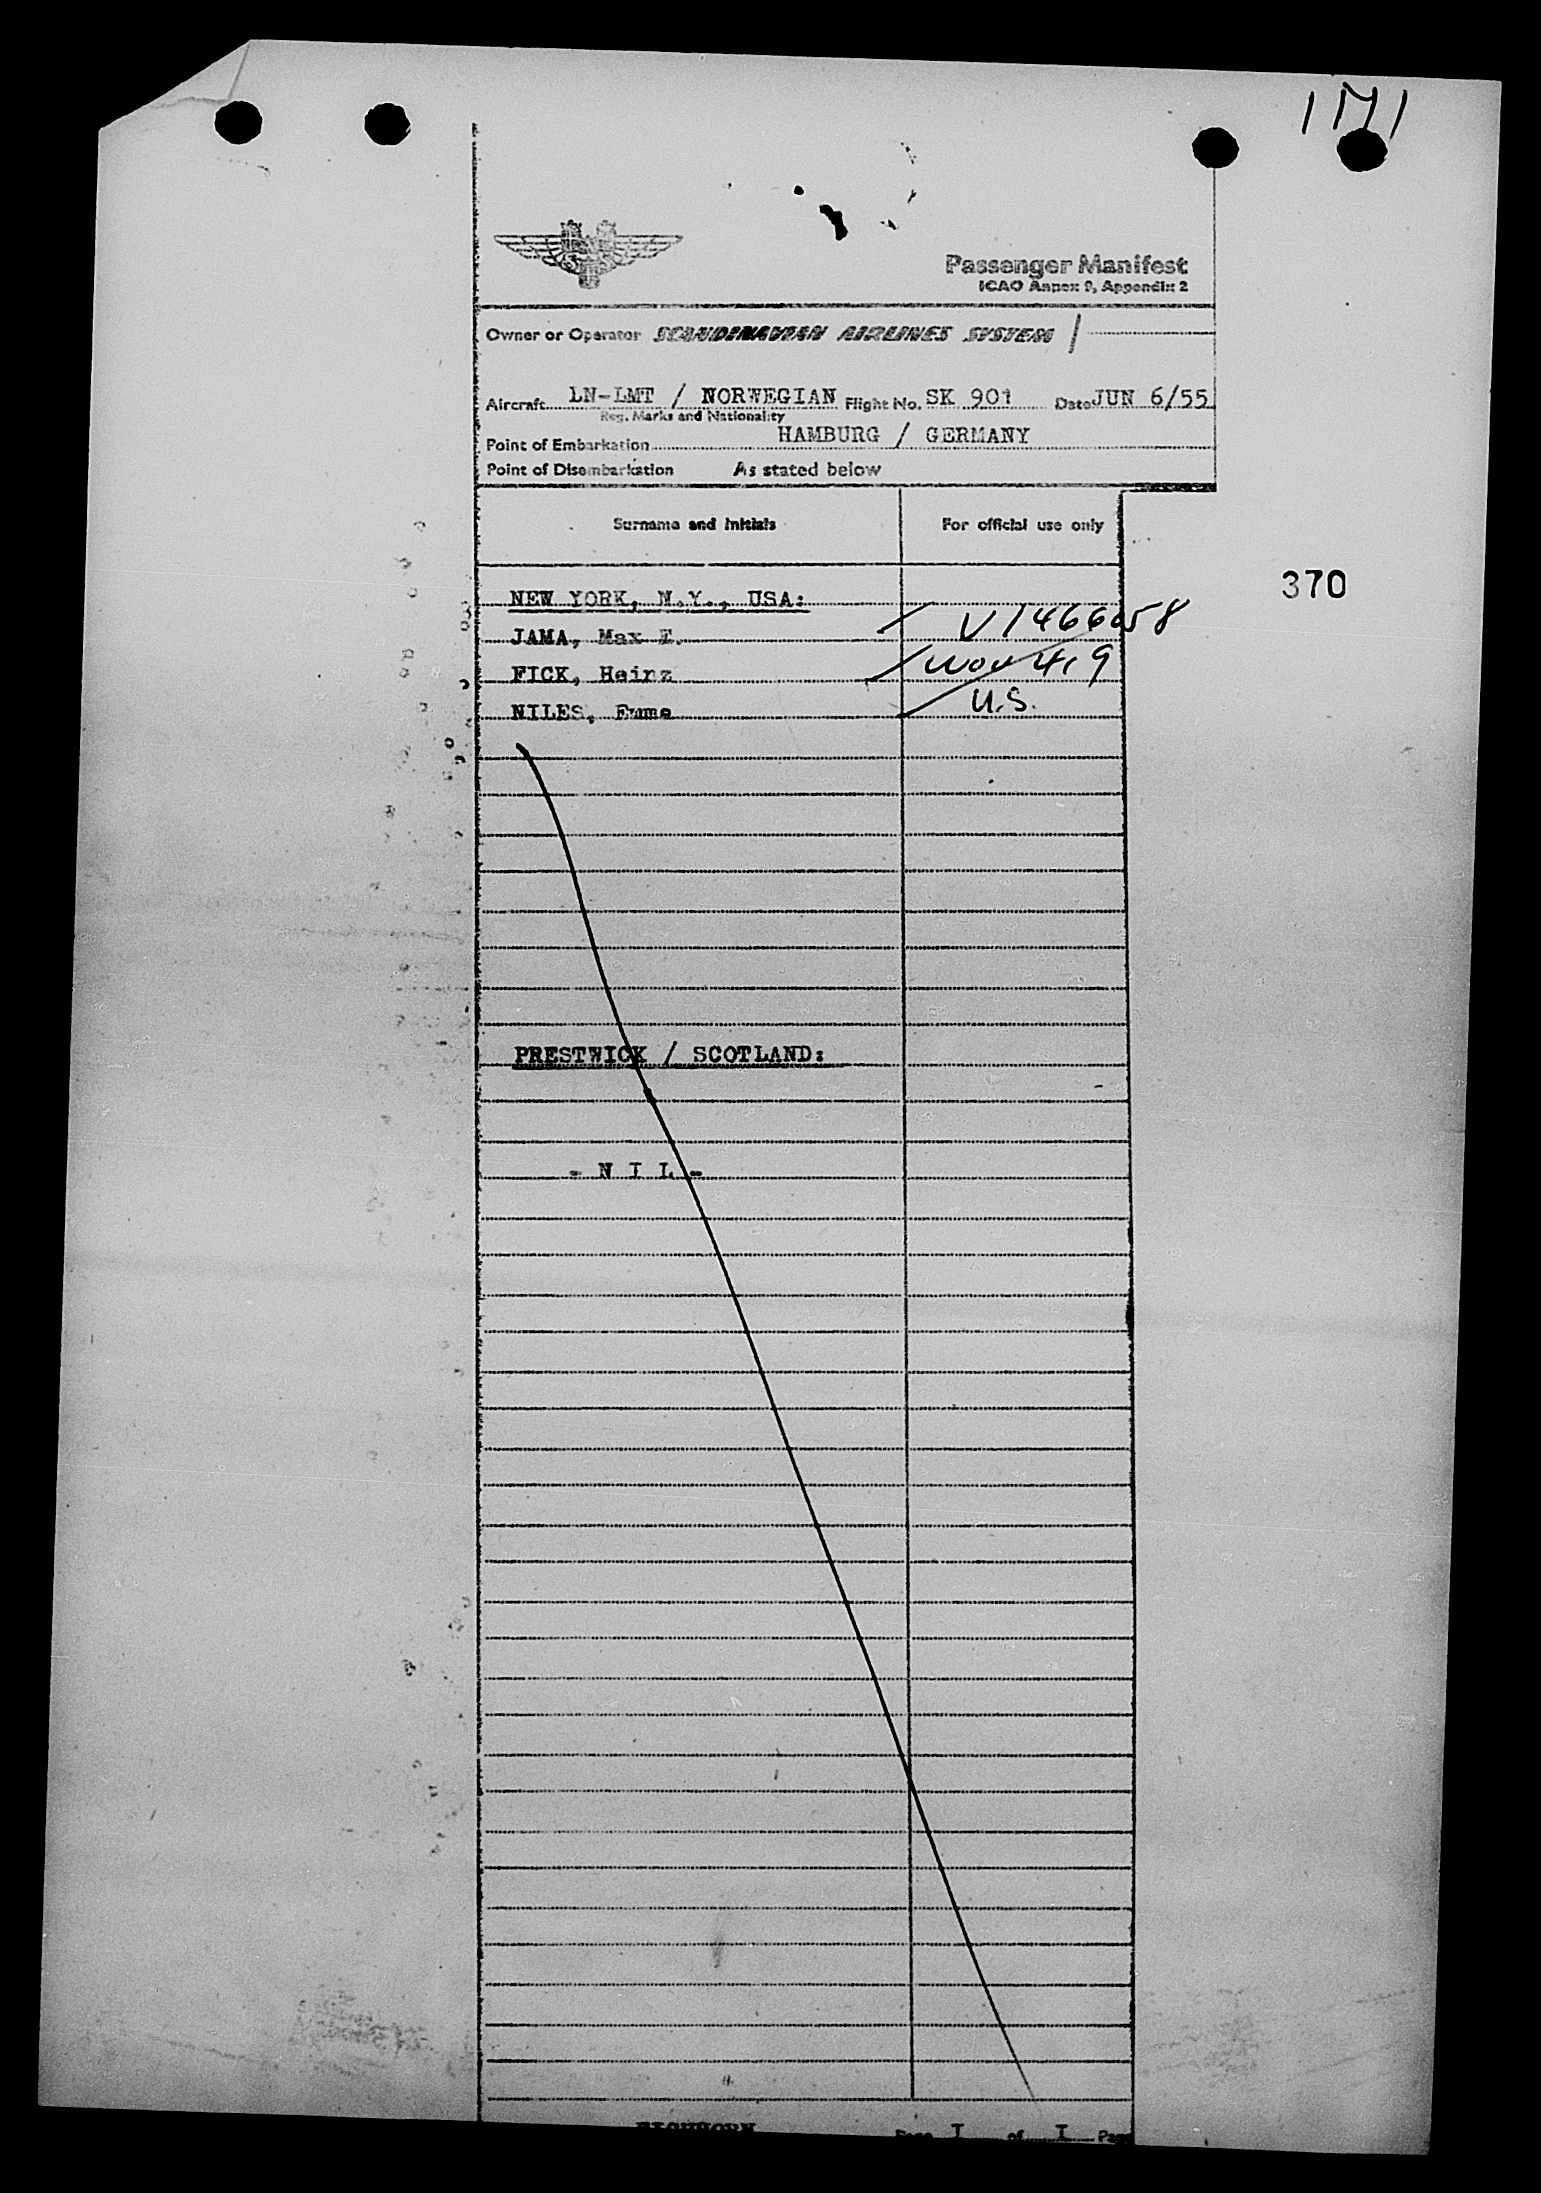 1171
Passenger Manifest
ICAO Annex 9, Appendix 2
Owner or Operator SCANDINAVIAN AIRLINES SYSTEM /
Aircraft LN-LMT / NORWEGIAN Flight No. SK 901 Date JUN 6/55
Reg. Marks and Nationality
Point of Embarkation HAMBURG / GERMANY
Point of Disembarkation As stated below
Surname and Initials For official use only
370
NEW YORK, N.Y., USA:
JAMA, Max E. V1466058
FICK, Heinz 419
NILES, Emme U.S.
PRESTWICK / SCOTLAND:
- N I L -
EICHHORN Page I of I Page